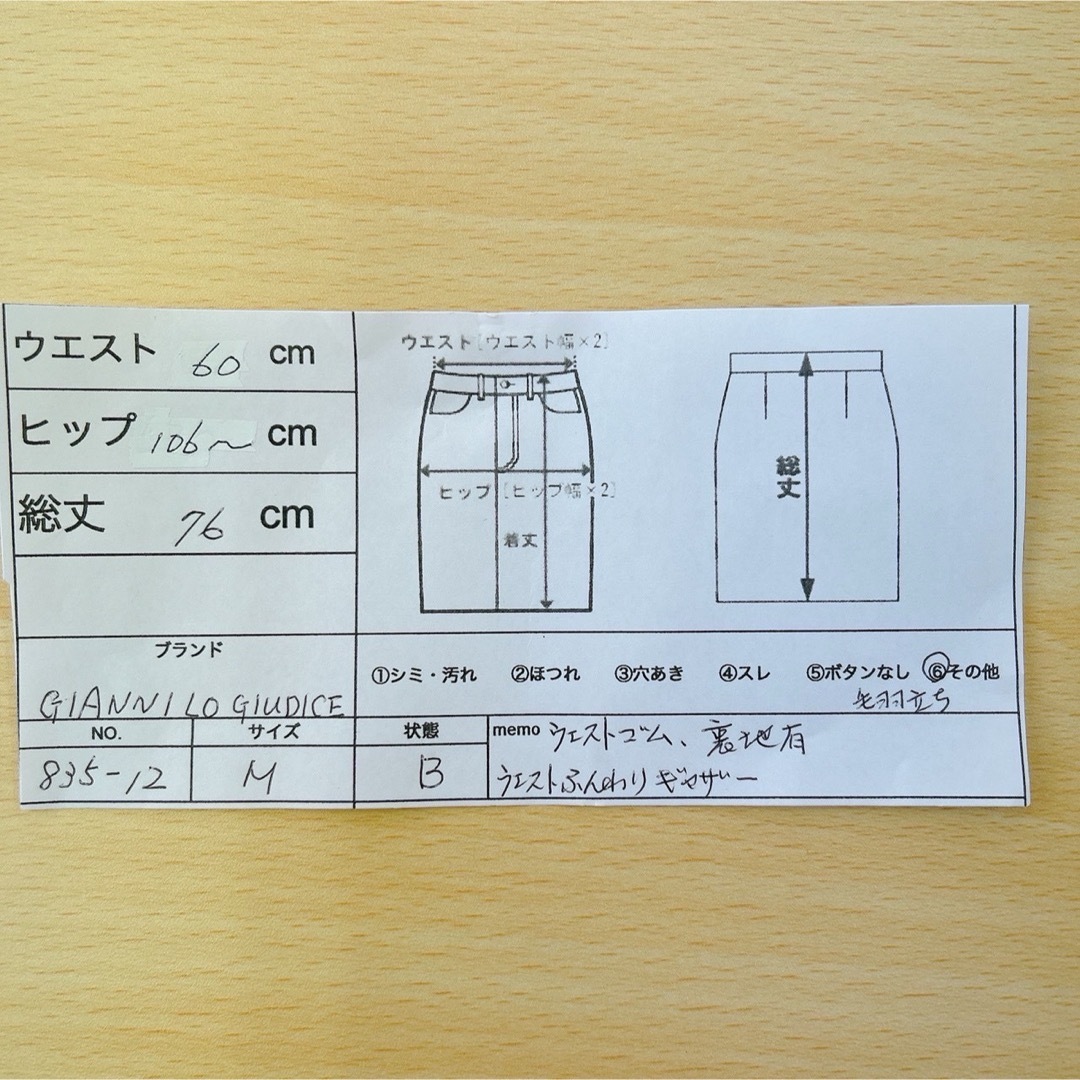 ウエスト 60 cm
ヒップ 106〜 cm
総丈 76 cm
ウエスト[ウエスト幅×2]
ヒップ[ヒップ幅×2]
着丈
総丈
ブランド
GIANNI LO GIUDICE
①シミ・汚れ ②ほつれ ③穴あき ④スレ ⑤ボタンなし ⑥その他
毛羽立ち
NO. サイズ 状態
835-12 M B
memo ウエストゴム、裏地有
ウエストふんわりギャザー